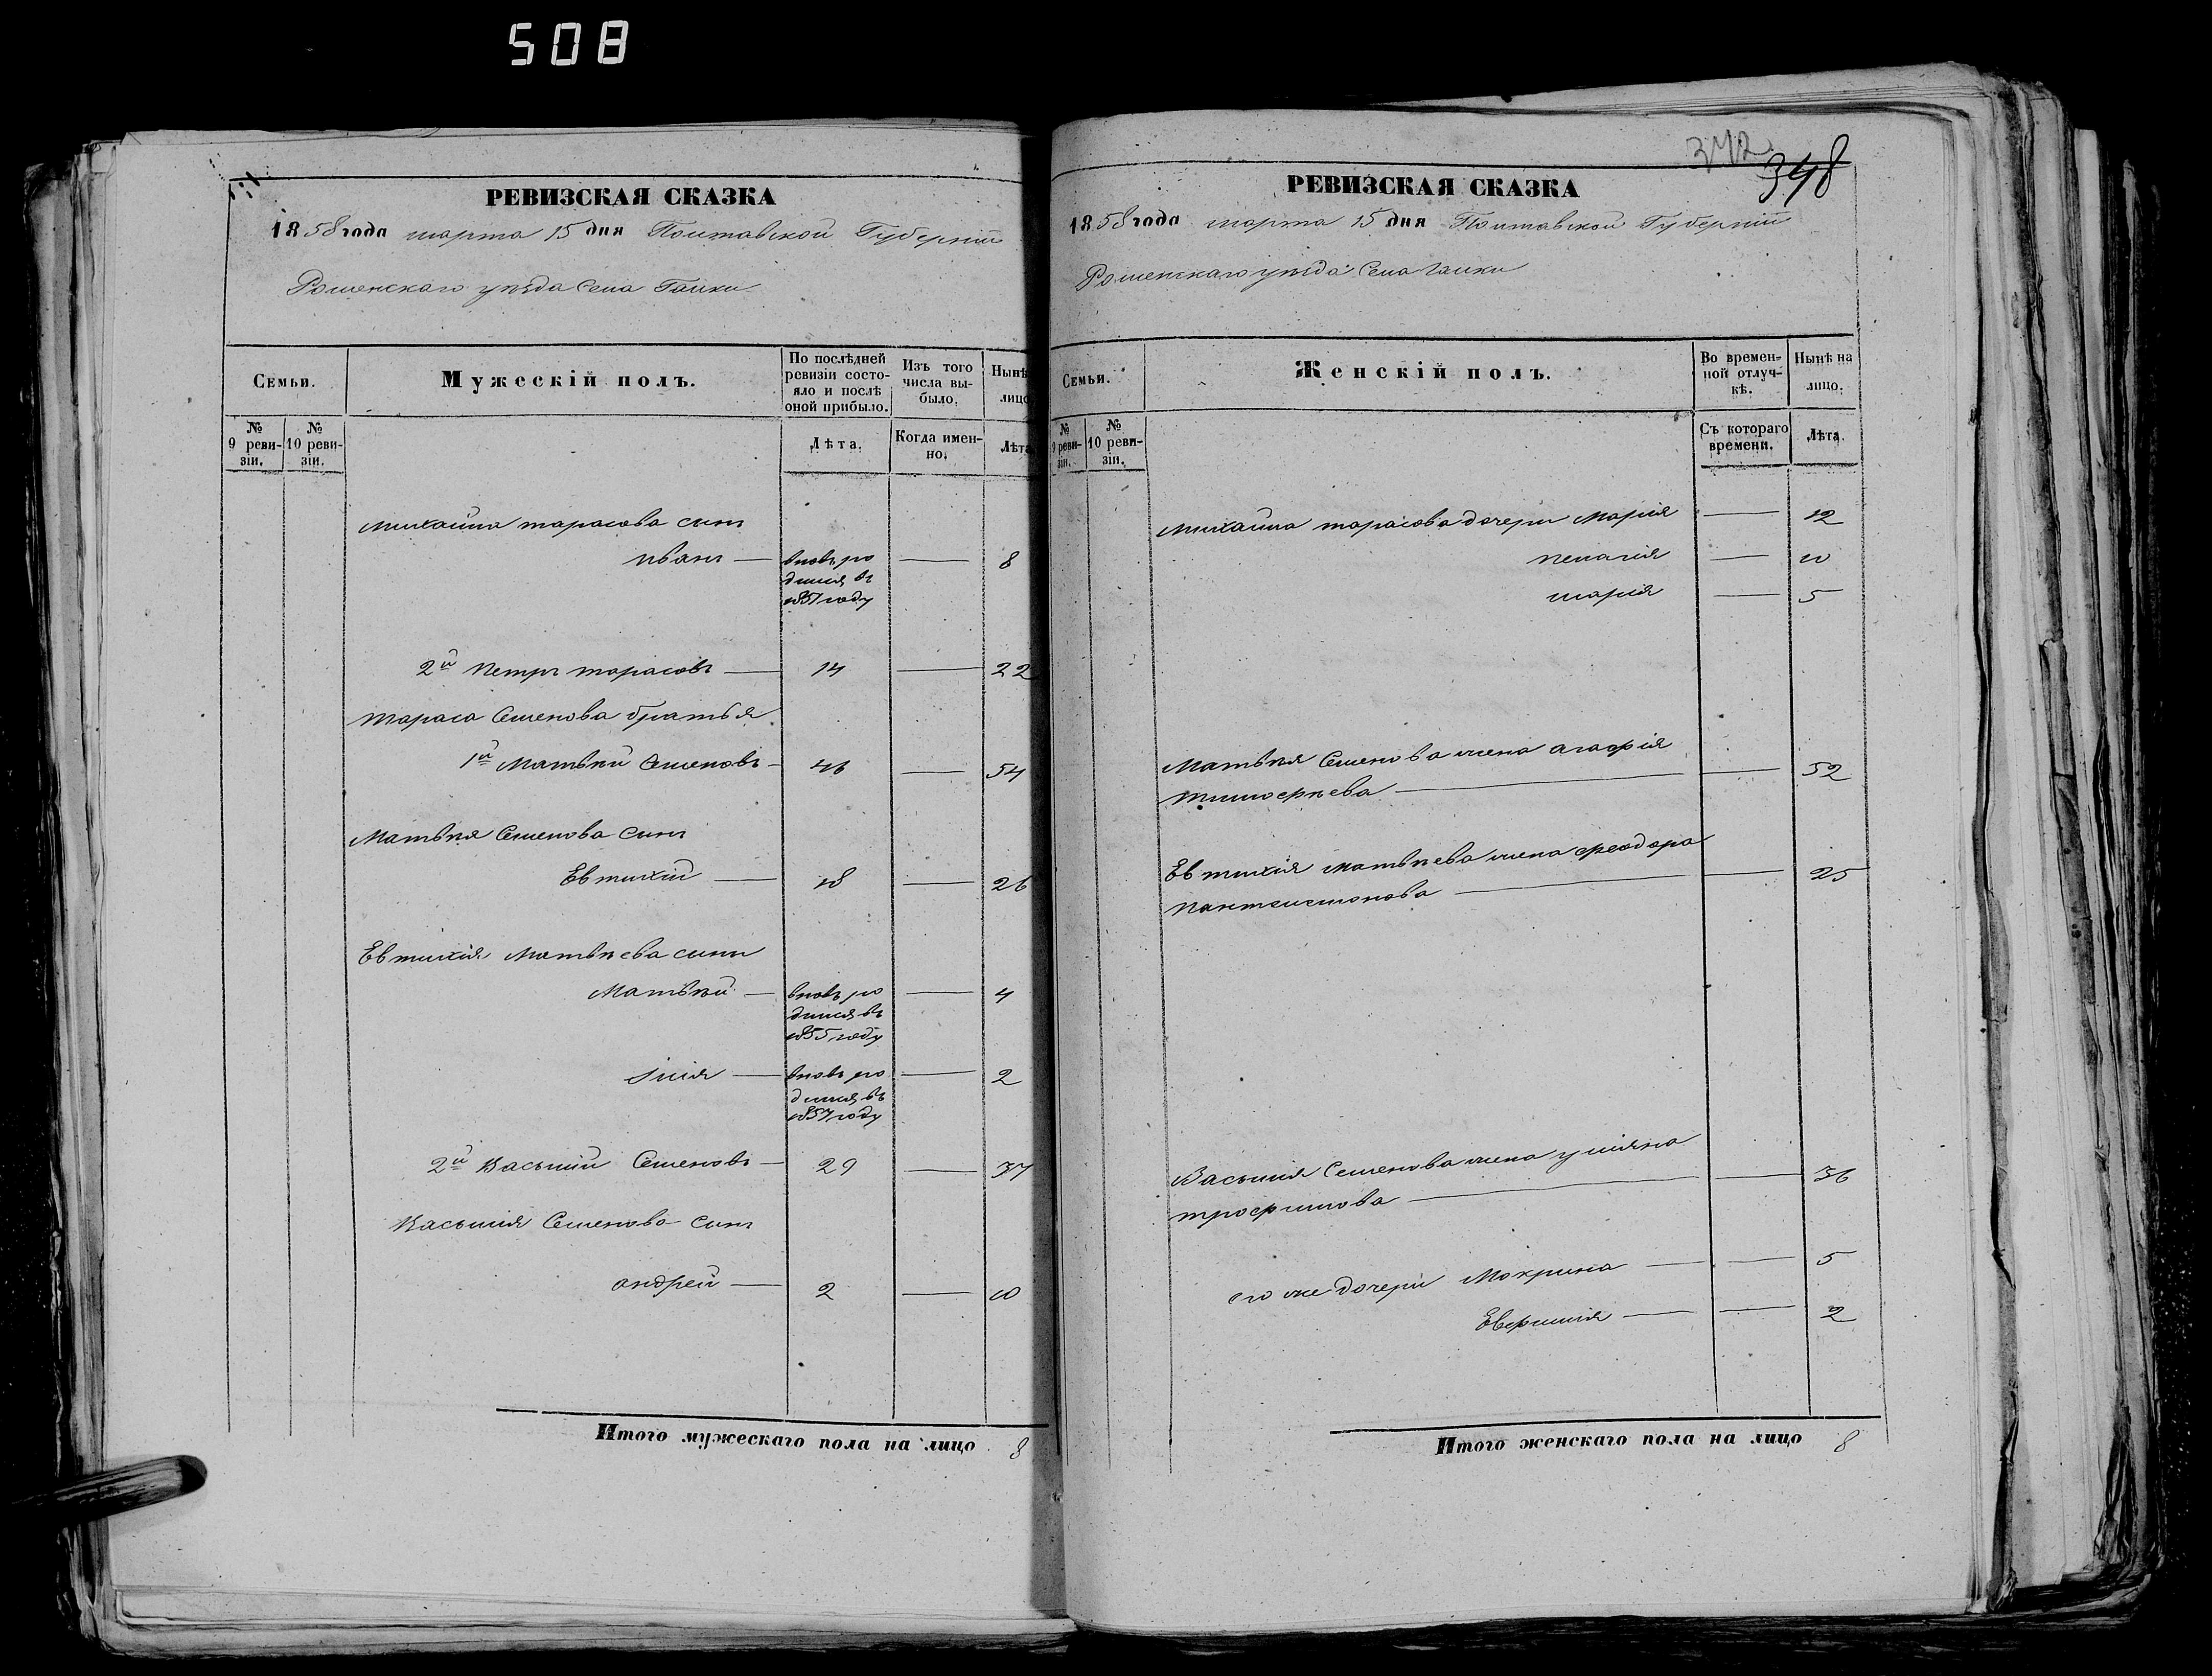 508
РЕВИЗСКАЯ СКАЗКА
1858 года марта 15 дня Полтавской Губерніи
Роменскаго уѣзда Села Галки
Семьи.
Мужескій полъ.
По послѣдней ревизіи состояло и послѣ оной прибыло.
Изъ того числа выбыло.
Нынѣ лицо
№ 9 ревизіи.
№ 10 ревизіи.
Лѣта.
Когда именно.
Лѣта
Михайла тарасова сынъ
иванъ — вновь ро — 8
дился въ
1851 году
2й Петръ тарасовъ — 14 — 22
тараса Семенова братья
1й Матвѣй Семеновъ - 46 — 54
Матвѣя Семенова сынъ
Евтихій — 18 — 26
Евтихія Матвѣева сыны
Матвѣй — вновь ро — 4
дился въ
1855 году
илія — вновь ро — 2
дился въ
1857 году
2й Василій Семеновъ — 29 — 37
Василія Семенова сынъ
андрей — 2 — 10
Итого мужескаго пола на лицо 8
342
348
РЕВИЗСКАЯ СКАЗКА
1858 года марта 15 дня Полтавской Губерніи
Роменскаго уѣзда Села Галки
Семьи.
Женскій полъ.
Во временной отлучкѣ.
Нынѣ на лицо.
№ 9 ревизіи.
№ 10 ревизіи.
Съ котораго времени.
Лѣта.
Михайла тарасова дочери Марія — 12
пелагія — 10
марія — 5
Матвѣя Семенова жена агафія
тимофѣева — — 52
Евтихія Матвѣева жена феодора
пантелемонова — — 25
Василія Семенова жена уліяна
трофимова — — 36
его же дочери Мокрина — — 5
Евфимія — — 2
Итого женскаго пола на лицо 8